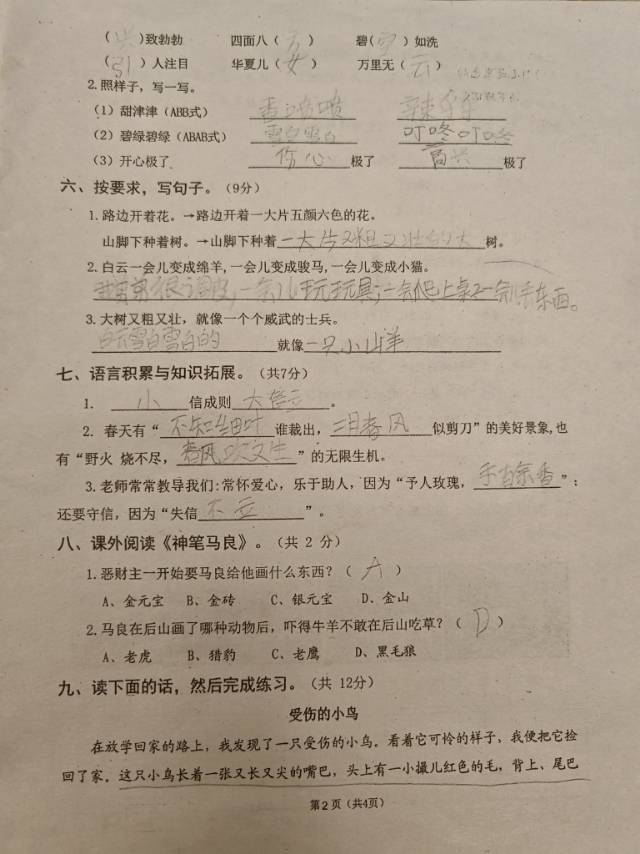 （兴）致勃勃 四面八（方） 碧（空）如洗
（引）人注目 华夏儿（女） 万里无（云）
2.照样子，写一写。
（1）甜津津（ABB式） 香喷喷
（2）碧绿碧绿（ABAB式） 雪白雪白 叮咚叮咚
（3）开心极了 伤心极了 高兴极了
六、按要求，写句子。（9分）
1.路边开着花。→路边开着一大片五颜六色的花。
山脚下种着树。→山脚下种着一大片又粗又壮的大树。
2.白云一会儿变成绵羊,一会儿变成骏马,一会儿变成小猫。
很调皮,一会儿玩玩具,一会爬上桌子一会儿手东西。
3.大树又粗又壮，就像一个个威武的士兵。
白云雪白雪白的就像一只小山羊
七、语言积累与知识拓展。（共7分）
1. 小信成则大信立。
2. 春天有“不知细叶谁裁出，二月春风似剪刀”的美好景象,也
有“野火 烧不尽，春风吹又生”的无限生机。
3.老师常常教导我们:常怀爱心，乐于助人，因为“予人玫瑰，手留余香”；
还要守信，因为“失信不立”。
八、课外阅读《神笔马良》。（共 2 分）
1.恶财主一开始要马良给他画什么东西？（A）
A、金元宝 B、金砖 C、银元宝 D、金山
2.马良在后山画了哪种动物后，吓得牛羊不敢在后山吃草？（D）
A、老虎 B、猎豹 C、老鹰 D、黑毛狼
九、读下面的话，然后完成练习。（共 12分）
受伤的小鸟
在放学回家的路上，我发现了一只受伤的小鸟。看着它可怜的样子，我便把它捡
回了家。这只小鸟长着一张又长又尖的嘴巴，头上有一小撮儿红色的毛，背上、尾巴
第2页（共4页）